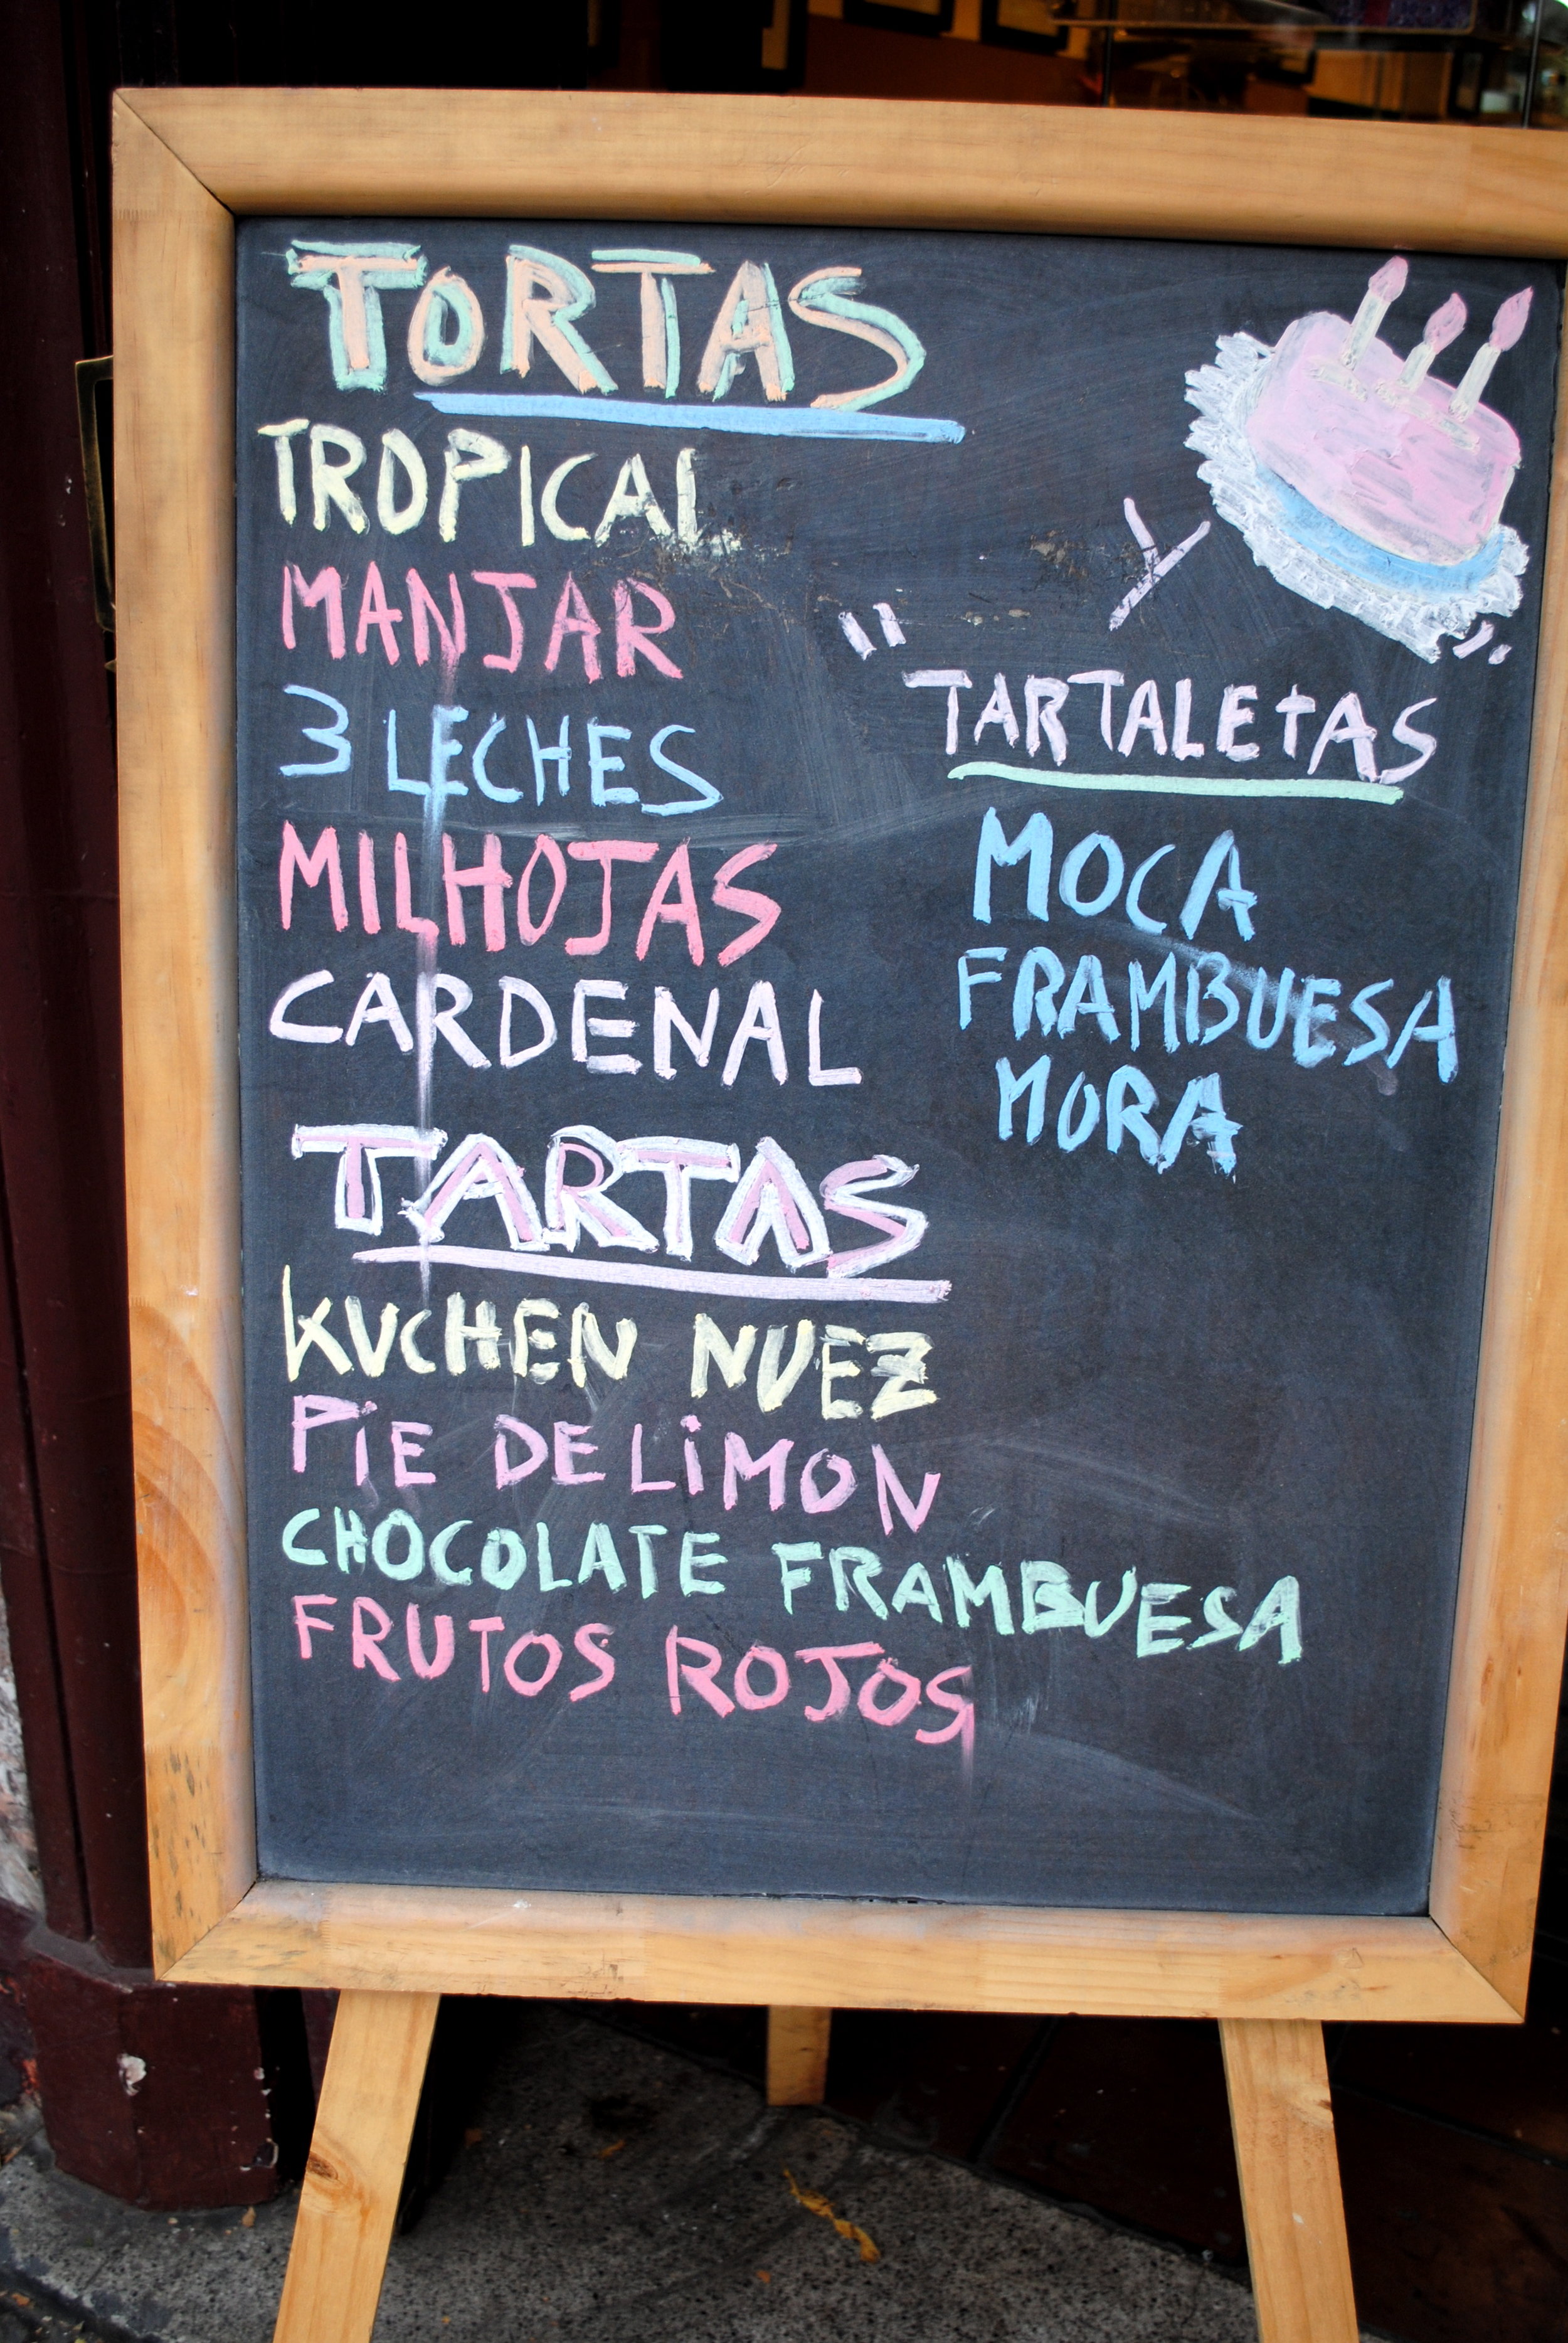 TORTAS
TROPICAL
MANJAR
3 LECHES
MILHOJAS
CARDENAL
TARTAS
KUCHEN NUEZ
PIE DE LIMON
CHOCOLATE FRAMBUESA
FRUTOS ROJOS
Y
"TARTALETAS"
MOCA
FRAMBUESA
MORA